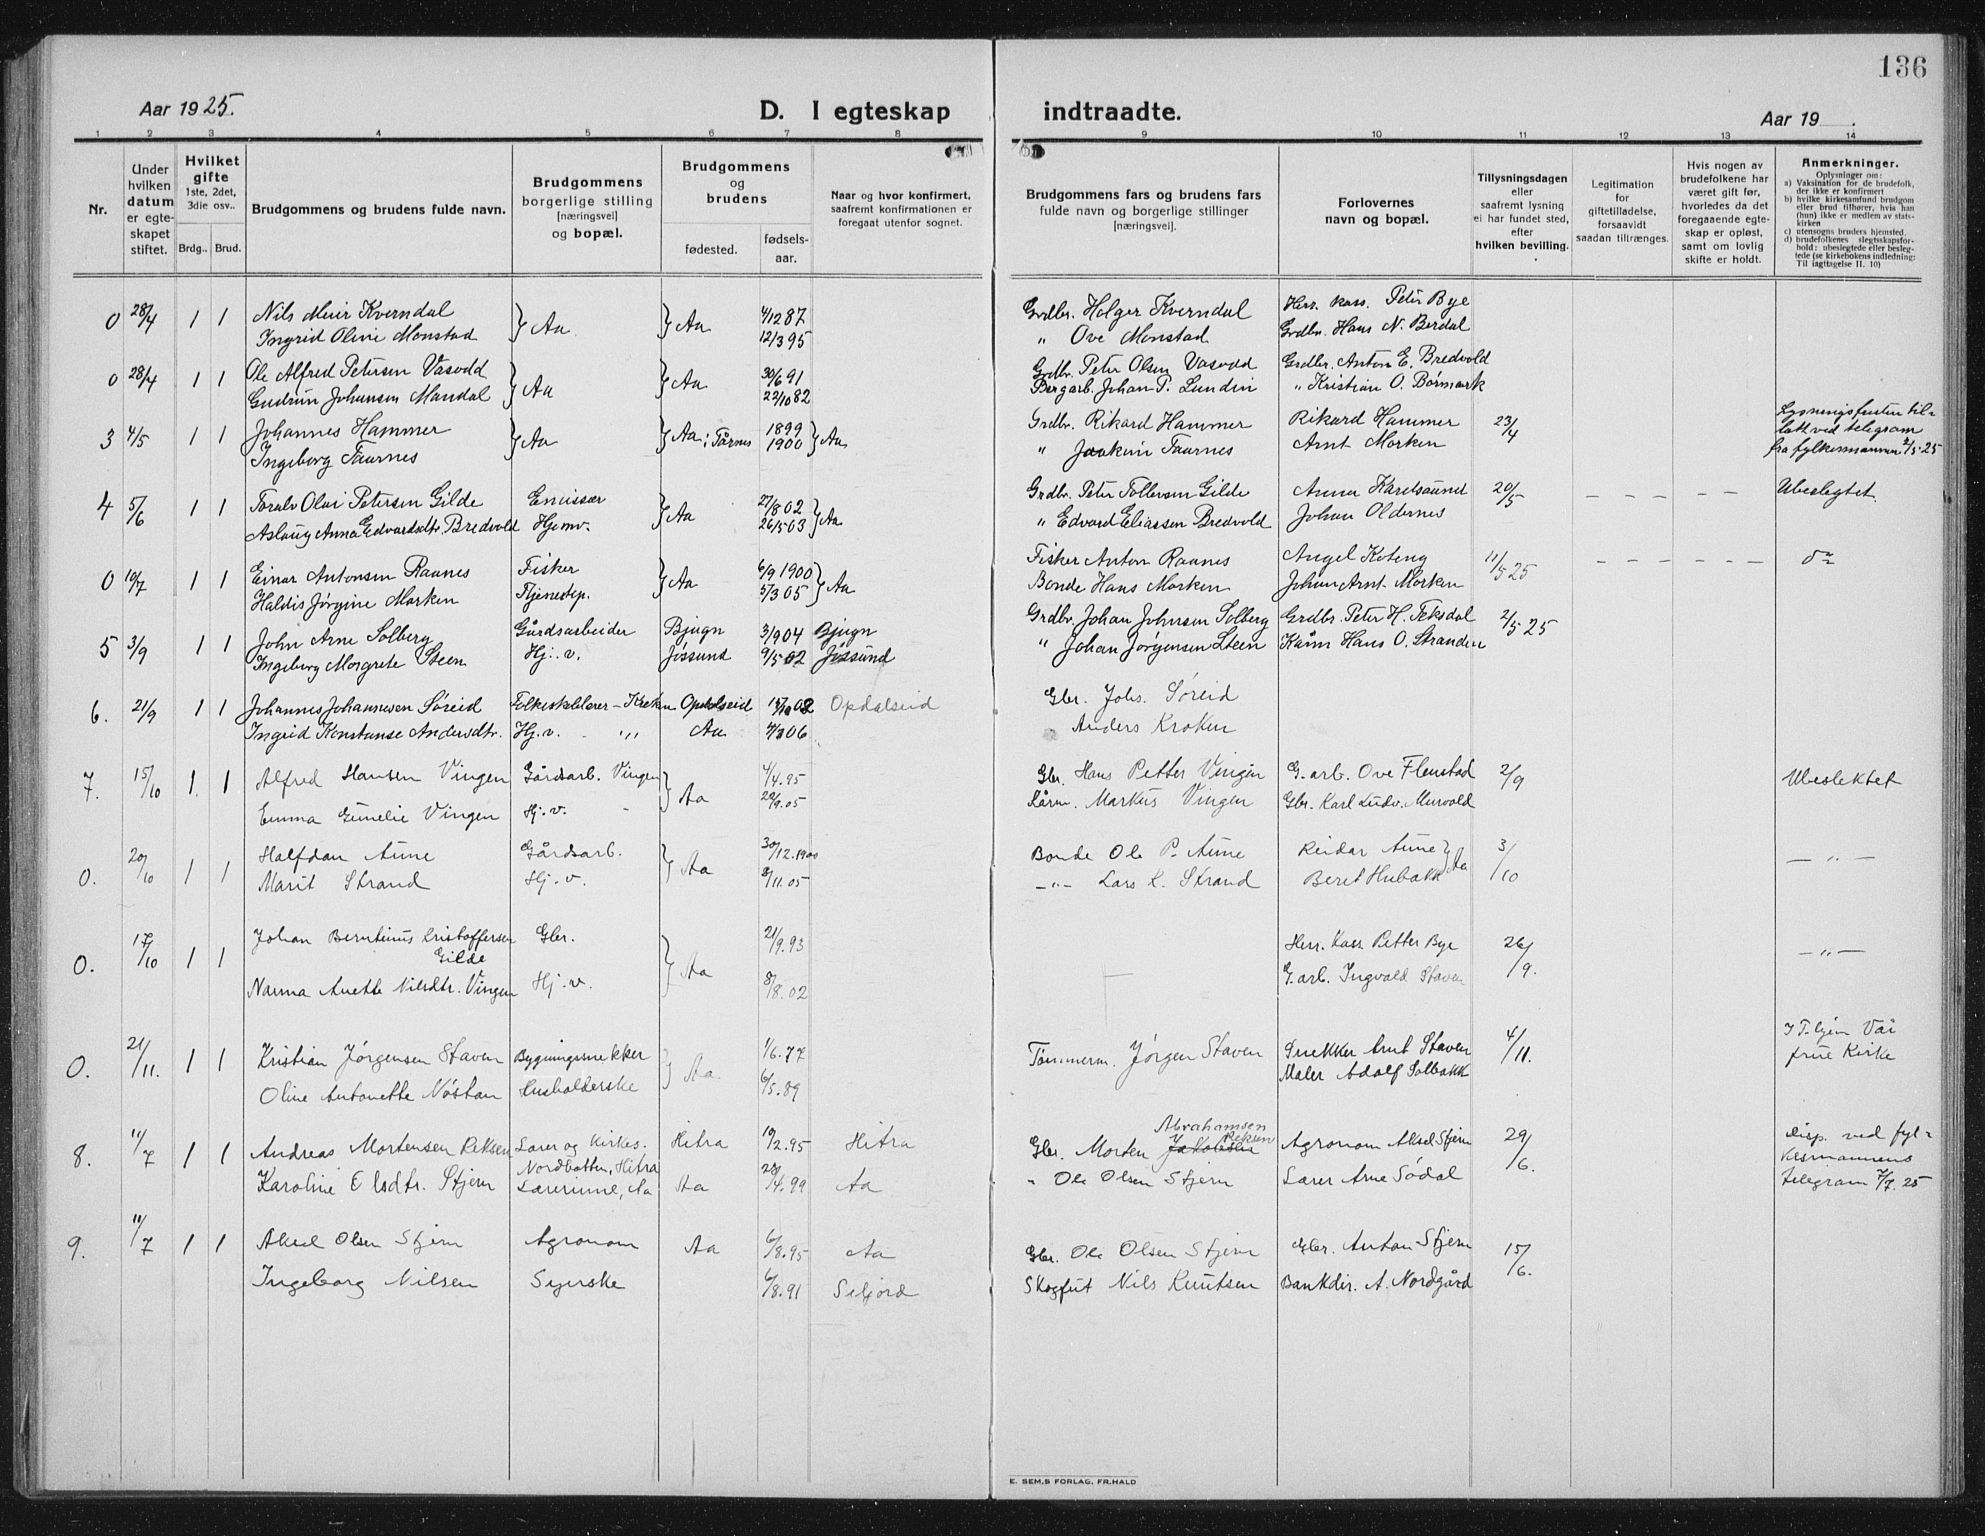 136
Aar 1925.
D. I egteskap indtraadte.
Aar 19 .
1 2 3 4 5 6 7 8 9 10 11 12 13 14
Nr.
Under
hvilken
datum
er egte-
skapet
stiftet.
Hvilket
gifte
1ste, 2det,
3die osv..
Brdg.. Brud.
Brudgommens og brudens fulde navn.
Brudgommens
borgerlige stilling
[næringsvei]
og bopæl.
Brudgommens
og
brudens
fødested.
fødsels-
aar.
Naar og hvor konfirmert,
saafremt konfirmationen er
foregaat utenfor sognet.
Brudgommens fars og brudens fars
fulde navn og borgerlige stillinger
[næringsvei].
Forlovernes
navn og bopæl.
Tillysningsdagen
eller
saafremt lysning
ei har fundet sted,
efter
hvilken bevilling.
Legitimation
for
giftetilladelse,
forsaavidt
saadan tiltrænges.
Hvis nogen av
brudefolkene har
været gift før,
hvorledes da det
foregaaende egte-
skap er opløst,
samt om lovlig
skifte er holdt.
Anmerkninger.
Oplysninger om:
a) Vaksination for de brudefolk,
der ikke er konfirmert
b) hvilke kirkesamfund brudgom
eller brud tilhører, hvis han
(hun) ikke er medlem av stats-
kirken
c) utensogns bruders hjemsted.
d) brudefolkenes slegtsskapsfor-
hold: ubeslegtede eller besleg-
tede (se kirkebokens indledning:
Til iagttagelse II. 10)
0 28/4 1 1 Nils Meier Kverndal } Aa } Aa 4/12 87 Grdbr. Holger Kverndal Herr. kass. Peter Bye
Ingrid Oline Monstad 12/3 95 " Ove Monstad Grdbr. Hans N. Berdal
0 28/4 1 1 Ole Alfred Petersen Vasødd } Aa } Aa 30/6 91 Grdb. Peter Olsen Vasødd Grdbr. Anton E. Bredvold
Gudrun Johansen Mandal 22/10 82 Bergarb. Johan P. Lundin " Kristian O. Børmark
3 4/5 1 1 Johannes Hammer } Aa } Aa; Tårnes 1899 } Aa Grdbr. Rikard Hammer Rikard Hammer 23/4 Lysningsfristen til-
Ingeborg Taarnes 1900 " Joakim Taarnes Arnt Morken latt ved telegram
fra fylkesmannen 2/5-25
4 5/6 1 1 Toralv Olai Petersen Gilde Emissær } Aa 27/8 02 } Aa Grdbr. Peter Tollefsen Gilde Anna Haretsaund 20/5 – – – – – Ubeslegtet
Aslaug Anna Edvardsdtr. Bredvold Hjemv. 26/5 03 " Edvard Eliassen Bredvold Johan Oldernes
0 10/7 1 1 Einar Antonsen Raanes Fisker } Aa 6/9 1900 } Aa Fisker Anton Raanes Angel Koteng 11/5 25 – – – – – – do
Haldis Jørgine Morken Tjenestep. 5/3 05 Bonde Hans Morken Johan Arnt Morken
5 3/9 1 1 John Arne Solberg Gårdsarbeider Bjugn 3/9 04 Bjugn Grdbr. Johan Johnsen Solberg Grdbr. Peter H. Teksdal 2/5 25
Ingeborg Margrete Steen Hj. v. Jøssund 9/5 02 Jøssund " Johan Jørgensen Steen Kårm Hans O. Stranden
6. 21/9 1 1 Johannes Johannesen Søreid Folkeskolelærer – Kroken Opdalseid 02 Opdalseid Gbr. Johs. Søreid
Ingrid Konstanse Andersdtr. Hj. v. " Aa 06 Anders Kroken
7. 15/10 1. 1 Alfred Hansen Vingen Gårdsarb. Vingen } Aa 4/4. 95 Gbr. Hans Petter Vingen G. arb. Ove Flenstad 2/9 Ubeslektet
Emma Gunelie Vingen Hj. v. " 29/9. 05 Kårm. Markus Vingen Gbr. Karl Ludv. Murvold
0. 20/10 1 1 Halfdan Aune Gårdsarb. } Aa 30/12. 1900 Bonde Ole P. Aune Reidar Aune } Aa 3/10 – " –
Marit Strand Hj. v. 8/11. 05 – " – Lars L. Strand Beret Hubakk
0. 17/10 1 1 Johan Berntinus Kristoffersen Gilde Gbr. } Aa 21/9. 93 Herr. Kass. Petter Bye 26/9. – " –
Nanna Anette Nilsdtr. Vingen Hj. v. 8/8. 02 G. arb. Ingvald Staven
0. 21/11. 1 1 Kristian Jørgensen Staven Bygningssnekker } Aa 1/6. 77 Tømmerm. Jørgen Staven Snekker Arnt Staven 4/11. I T.hjem Vår
Oline Antonette Nøstan Husholderske 6/5. 89 Maler Adolf Solbakk frue Kirke
8. 11/7 1 1 Andreas Mortensen Reksen Lærer og kirkes. Nordbotten, Hitra Hitra 19/2. 95 Hitra Gbr. Morten Abrahamsen Reksen Agronom Aksel Stjern 29/6. Disp. ved fyl-
kesmannens
Karoline Olsdtr. Stjern Lærerinne, Aa Aa 28/4. 99 Aa " Ole Olsen Stjern Lærer Arne Södal telegram 7/7. 25
9. 11/7 1 1 Aksel Olsen Stjern Agronom Aa 6/8. 95 Aa Gbr. Ole Olsen Stjern Gbr. Anton Stjern 15/6.
Ingeborg Nilsen Syerske 6/8. 91 Seljord Skogfut Nils Knutsen Bankdir. A. Nordgård
E. SEM,S FORLAG, FR.HALD